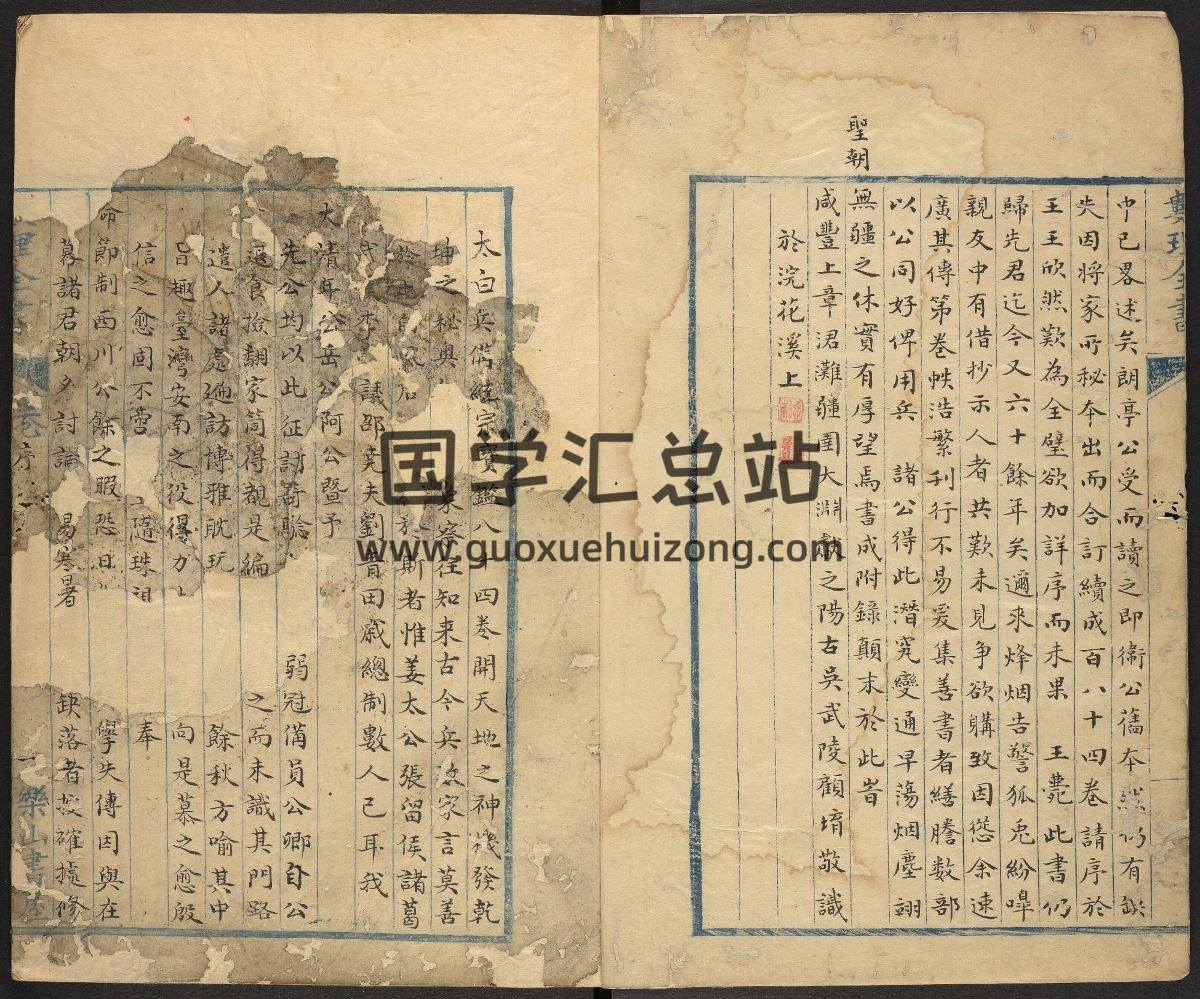 中已畧述矣朗亭公受而讀之即衞公舊本 以有缺
失因將家所秘本出而合訂續成百八十四卷請序於
王王欣然歎為全璧欲加詳序而未果 王薨此書仍
歸先君迄今又六十餘年矣邇來烽烟告警狐兎紛嘷
親友中有借抄示人者共歎未見争欲購致因慫余速
廣其傳第卷帙浩繁刊行不易爰集善書者繕謄数部
以公同好俾用兵 諸公得此潛究變通早蕩烟塵翊
聖朝
無疆之休實有厚望焉書成附錄顛末於此旹
咸豐上章涒灘疆圉大淵獻之陽古吳武陵顧堉敬識
於浣花溪上
太白兵備統宗寶鑑八十四卷開天地之神機發乾
坤之秘奥 察往知来古今兵法家言莫善
於 斯者惟姜太公張留侯諸葛
武 李 邵堯夫劉青田戚總制數人已耳我
大清 公岳公阿公暨予
先公均以此征討奇驗 弱冠備員公卿自公
退食撿翻家笥得覩是編 之而未識其門路
遣人諸處遍訪博雅耽玩 餘秋方喻其中
旨趣臺灣安南之役得力 向是慕之愈殷
信之愈固不啻 隨珠 奉
命節制西川公餘之暇恐日 學失傳因與在
幕諸君朝夕討論 易寒暑 缺落者 確據修
序
樂山書屋
国学汇总站
www.guoxuehuizong.com